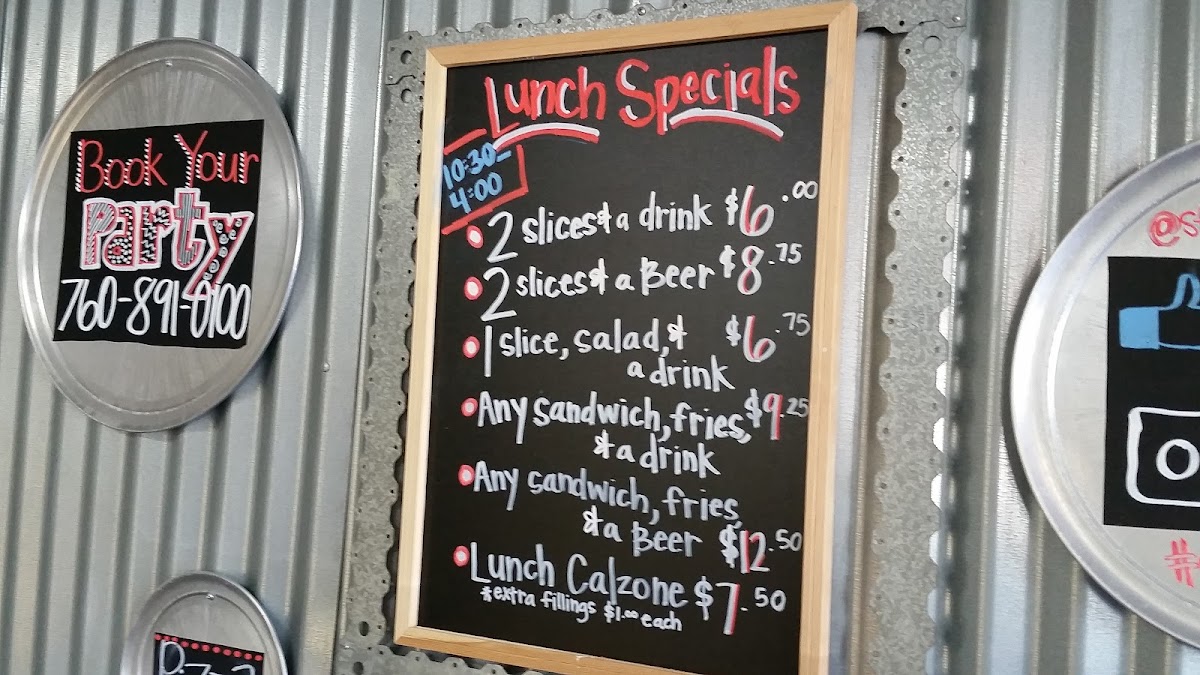 Book Your
Party
760-891-0100
Lunch Specials
10:30-
4:00
2 slices & a drink $6.00
2 slices & a Beer $8.75
1 slice, salad, & $6.75
a drink
Any sandwich, fries, $9.25
& a drink
Any sandwich, fries
& a Beer $12.50
Lunch Calzone $7.50
*extra fillings $1.00 each
#